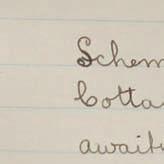 Schem
Cotta
await